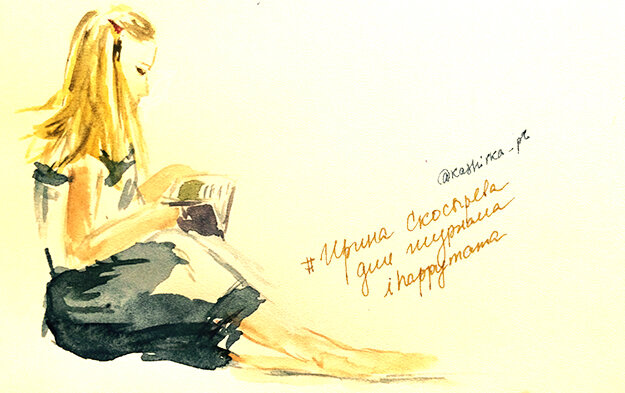 @kashirka_pt
#Ирина Скосырева
для журнала
ihappymama